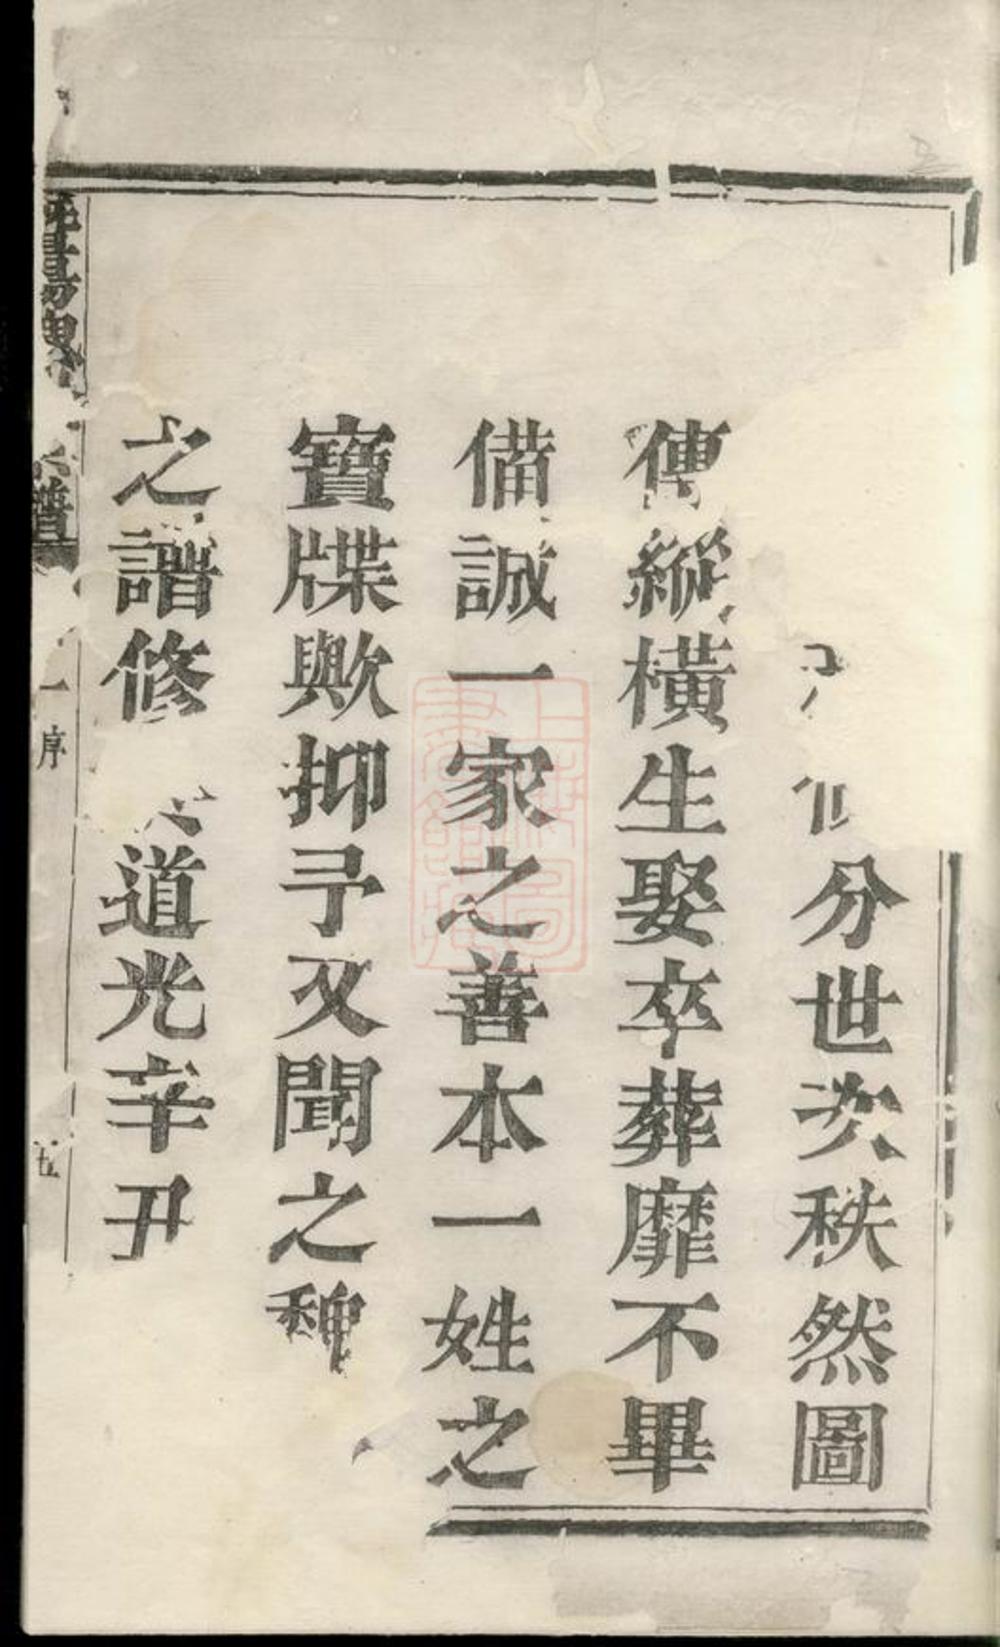 分世次秩然圖
傳縱橫生娶卒葬靡不畢
備誠一家之善本一姓之
寶牒歟抑予又聞之魏
之譜修道光辛丑
譜
一
序
五
上海圖書館藏